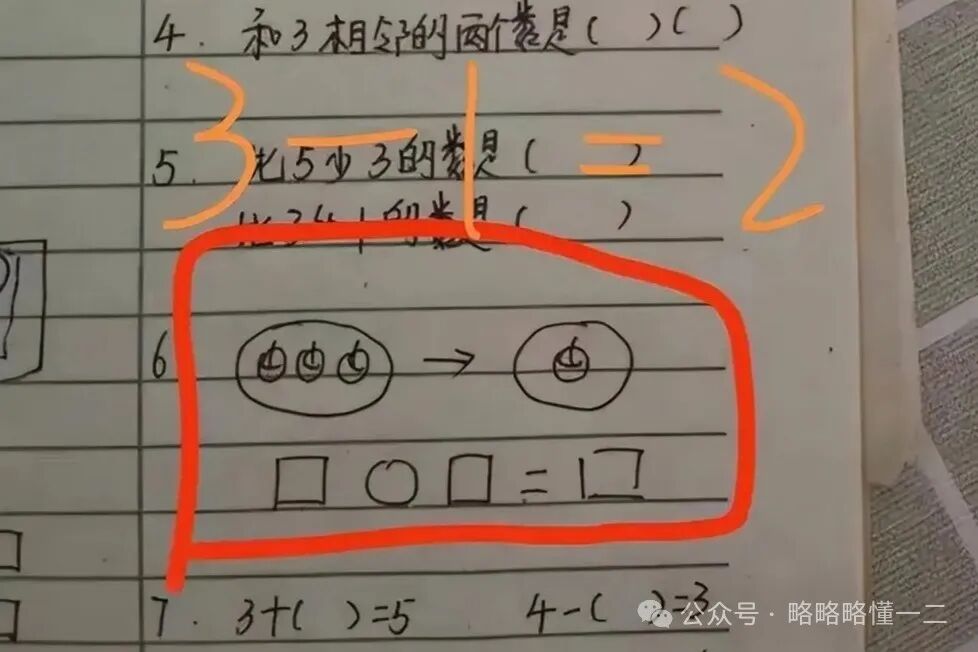 4. 和3相邻的两个数是( )( )
3-1=2
5. 比5少3的数是( )
比3多1的数是( )
6
→
□○□=□
7. 3+( )=5 4-( )=3
公众号·略略略懂一二